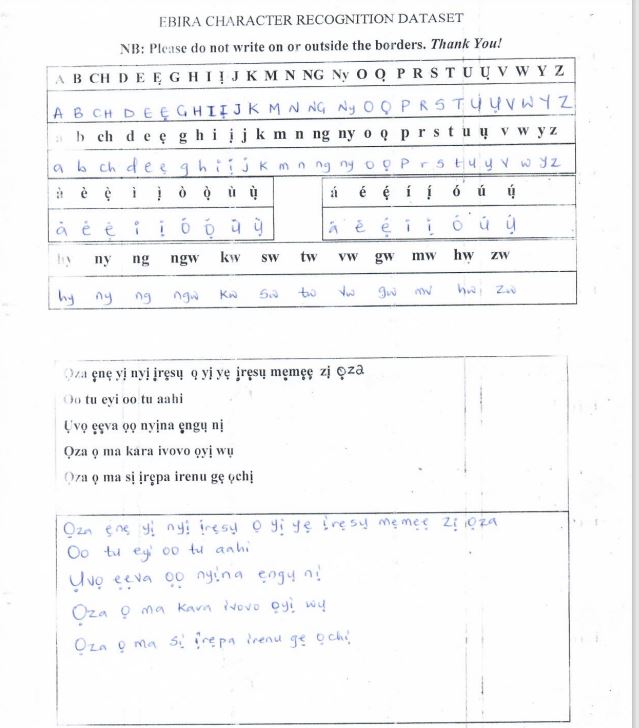 EBIRA CHARACTER RECOGNITION DATASET
NB: Please do not write on or outside the borders. Thank You!
A B CH D E Ẹ G H I Ị J K M N NG Ny O Ọ P R S T U Ụ V W Y Z
A B CH D E Ẹ G H I Ị J K M N NG Ny O Ọ P R S T U Ụ V W Y Z
a b ch d e ẹ g h i ị j k m n ng ny o ọ p r s t u ụ v w y z
a b ch d e ẹ g h i ị j k m n ng ny o ọ p r s t u ụ v w y z
à è ẹ̀ ì ị̀ ò ọ̀ ù ụ̀ á é ẹ́ í ị́ ó ú ụ́
à è ẹ̀ ì ị̀ ò ọ̀ ù ụ̀ á é ẹ́ í ị́ ó ú ụ́
hy ny ng ngw kw sw tw vw gw mw hw zw
hy ny ng ngw kw sw tw vw gw mw hw zw
Ọza ẹnẹ yị nyị ịrẹsụ ọ yị yẹ ịrẹsụ mẹmẹẹ zị ọza
Oo tu eyi oo tu aahi
Ụvọ ẹẹva ọọ nyịna ẹngụ nị
Ọza ọ ma kara ivovo ọyị wụ
Ọza ọ ma sị ịrẹpa irenu gẹ ọchị
Ọza ẹnẹ yị nyị ịrẹsụ ọ yị yẹ ịrẹsụ mẹmẹẹ zị ọza
Oo tu eyi oo tu aahi
Ụvọ ẹẹva ọọ nyịna ẹngụ nị
Ọza ọ ma kara ivovo ọyị wụ
Ọza ọ ma sị ịrẹpa irenu gẹ ọchị